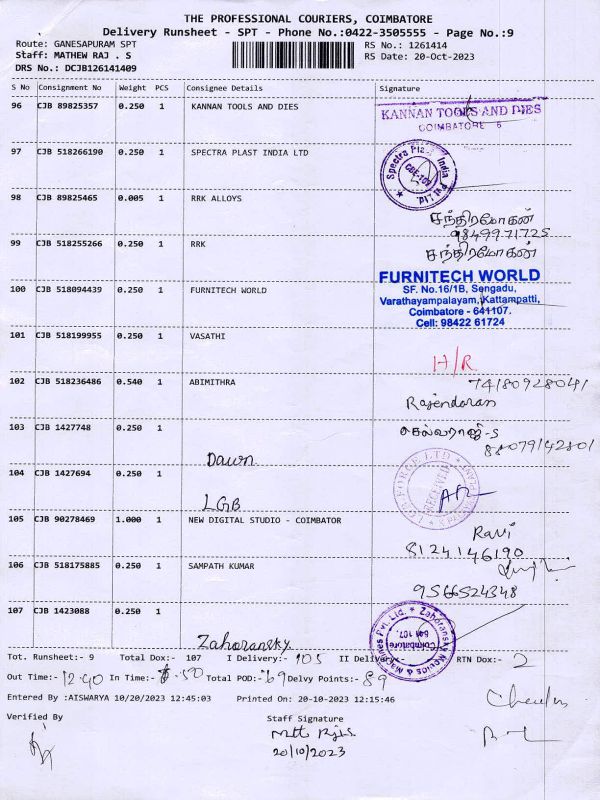 THE PROFESSIONAL COURIERS, COIMBATORE
Delivery Runsheet - SPT - Phone No.:0422-3505555 - Page No.:9
Route: GANESAPURAM SPT
RS No.: 1261414
Staff: MATHEW RAJ . S
RS Date: 20-Oct-2023
DRS No.: DCJB126141409
S No Consignment No Weight PCS Consignee Details Signature
96 CJB 89825357 0.250 1 KANNAN TOOLS AND DIES
KANNAN TOOLS AND DIES
COIMBATORE 6
97 CJB 518266190 0.250 1 SPECTRA PLAST INDIA LTD
Spectra Plast India Pvt Ltd.
98 CJB 89825465 0.005 1 RRK ALLOYS
சந்திரமோகன்
9849971725
99 CJB 518255266 0.250 1 RRK
சந்திரமோகன்
100 CJB 518094439 0.250 1 FURNITECH WORLD
FURNITECH WORLD
SF. No.16/1B, Sengadu,
Varathayampalayam, Kattampatti,
Coimbatore - 641107.
Cell: 98422 61724
101 CJB 518199955 0.250 1 VASATHI
H/R
102 CJB 518236486 0.540 1 ABIMITHRA
74180928041
Rajendaran
103 CJB 1427748 0.250 1
Dawn
செல்வராஜ்-S
88079142801
104 CJB 1427694 0.250 1
LGB
L.G.B. FORGE LTD
RECEIVED
105 CJB 90278469 1.000 1 NEW DIGITAL STUDIO - COIMBATOR
Ravi
8124146190
106 CJB 518175885 0.250 1 SAMPATH KUMAR
9566524348
107 CJB 1423088 0.250 1
Zahoransky
Zahoransky Moulds & Machines Pvt. Ltd.
Coimbatore
641 107.
Tot. Runsheet:- 9 Total Dox:- 107 I Delivery:- 105 II Delivery:- RTN Dox:- 2
Out Time:- 12.40 In Time:- .50 Total POD:- 69 Delvy Points:- 89
Entered By :AISWARYA 10/20/2023 12:45:03 Printed On: 20-10-2023 12:15:46
Verified By
Staff Signature
20/10/2023